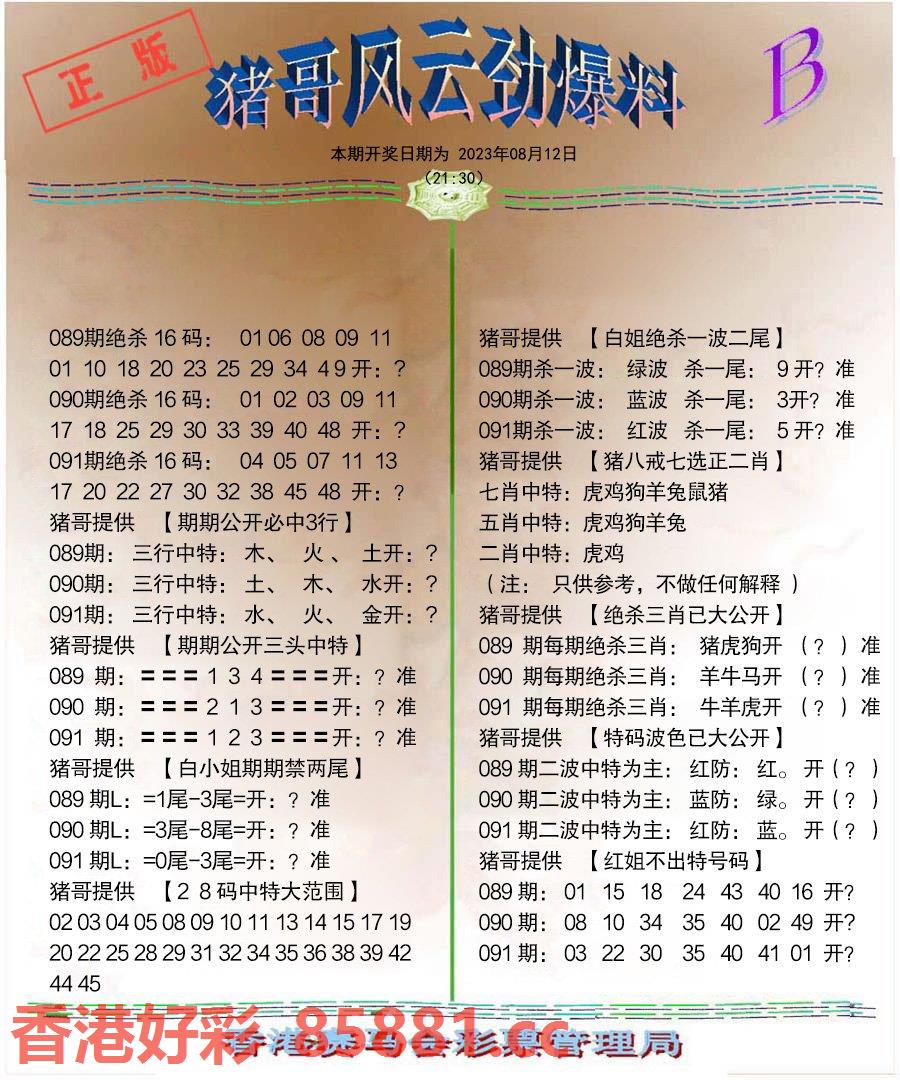 正版
猪哥风云劲爆料
B
本期开奖日期为 2023年08月12日
(21:30)
089期绝杀 16 码： 01 06 08 09 11
01 10 18 20 23 25 29 34 49 开：?
090期绝杀 16 码： 01 02 03 09 11
17 18 25 29 30 33 39 40 48 开：?
091期绝杀 16 码： 04 05 07 11 13
17 20 22 27 30 32 38 45 48 开：?
猪哥提供 【期期公开必中3行】
089期： 三行中特： 木、 火 、 土开：?
090期： 三行中特： 土、 木、 水开：?
091期： 三行中特： 水、 火、 金开：?
猪哥提供 【期期公开三头中特】
089 期：===1 3 4===开：? 准
090 期：===2 1 3===开：? 准
091 期：===1 2 3===开：? 准
猪哥提供 【白小姐期期禁两尾】
089 期L：=1尾-3尾=开：? 准
090 期L：=3尾-8尾=开：? 准
091 期L：=0尾-3尾=开：? 准
猪哥提供 【28码中特大范围】
02 03 04 05 08 09 10 11 13 14 15 17 19
20 22 25 28 29 31 32 34 35 36 38 39 42
44 45
猪哥提供 【白姐绝杀一波二尾】
089期杀一波： 绿波 杀一尾： 9 开? 准
090期杀一波： 蓝波 杀一尾： 3开? 准
091期杀一波： 红波 杀一尾： 5 开? 准
猪哥提供 【猪八戒七选正二肖】
七肖中特：虎鸡狗羊兔鼠猪
五肖中特：虎鸡狗羊兔
二肖中特：虎鸡
（注： 只供参考，不做任何解释 ）
猪哥提供 【绝杀三肖已大公开】
089 期每期绝杀三肖： 猪虎狗开 （? ）准
090 期每期绝杀三肖： 羊牛马开 （? ）准
091 期每期绝杀三肖： 牛羊虎开 （? ）准
猪哥提供 【特码波色已大公开】
089 期二波中特为主：红防：红。开（? ）
090 期二波中特为主：蓝防：绿。开（? ）
091 期二波中特为主：红防：蓝。开（? ）
猪哥提供 【红姐不出特号码】
089 期： 01 15 18 24 43 40 16 开?
090 期： 08 10 34 35 40 02 49 开?
091 期： 03 22 30 35 40 41 01 开?
香港好彩 85881.cc
香港赛马会彩票管理局